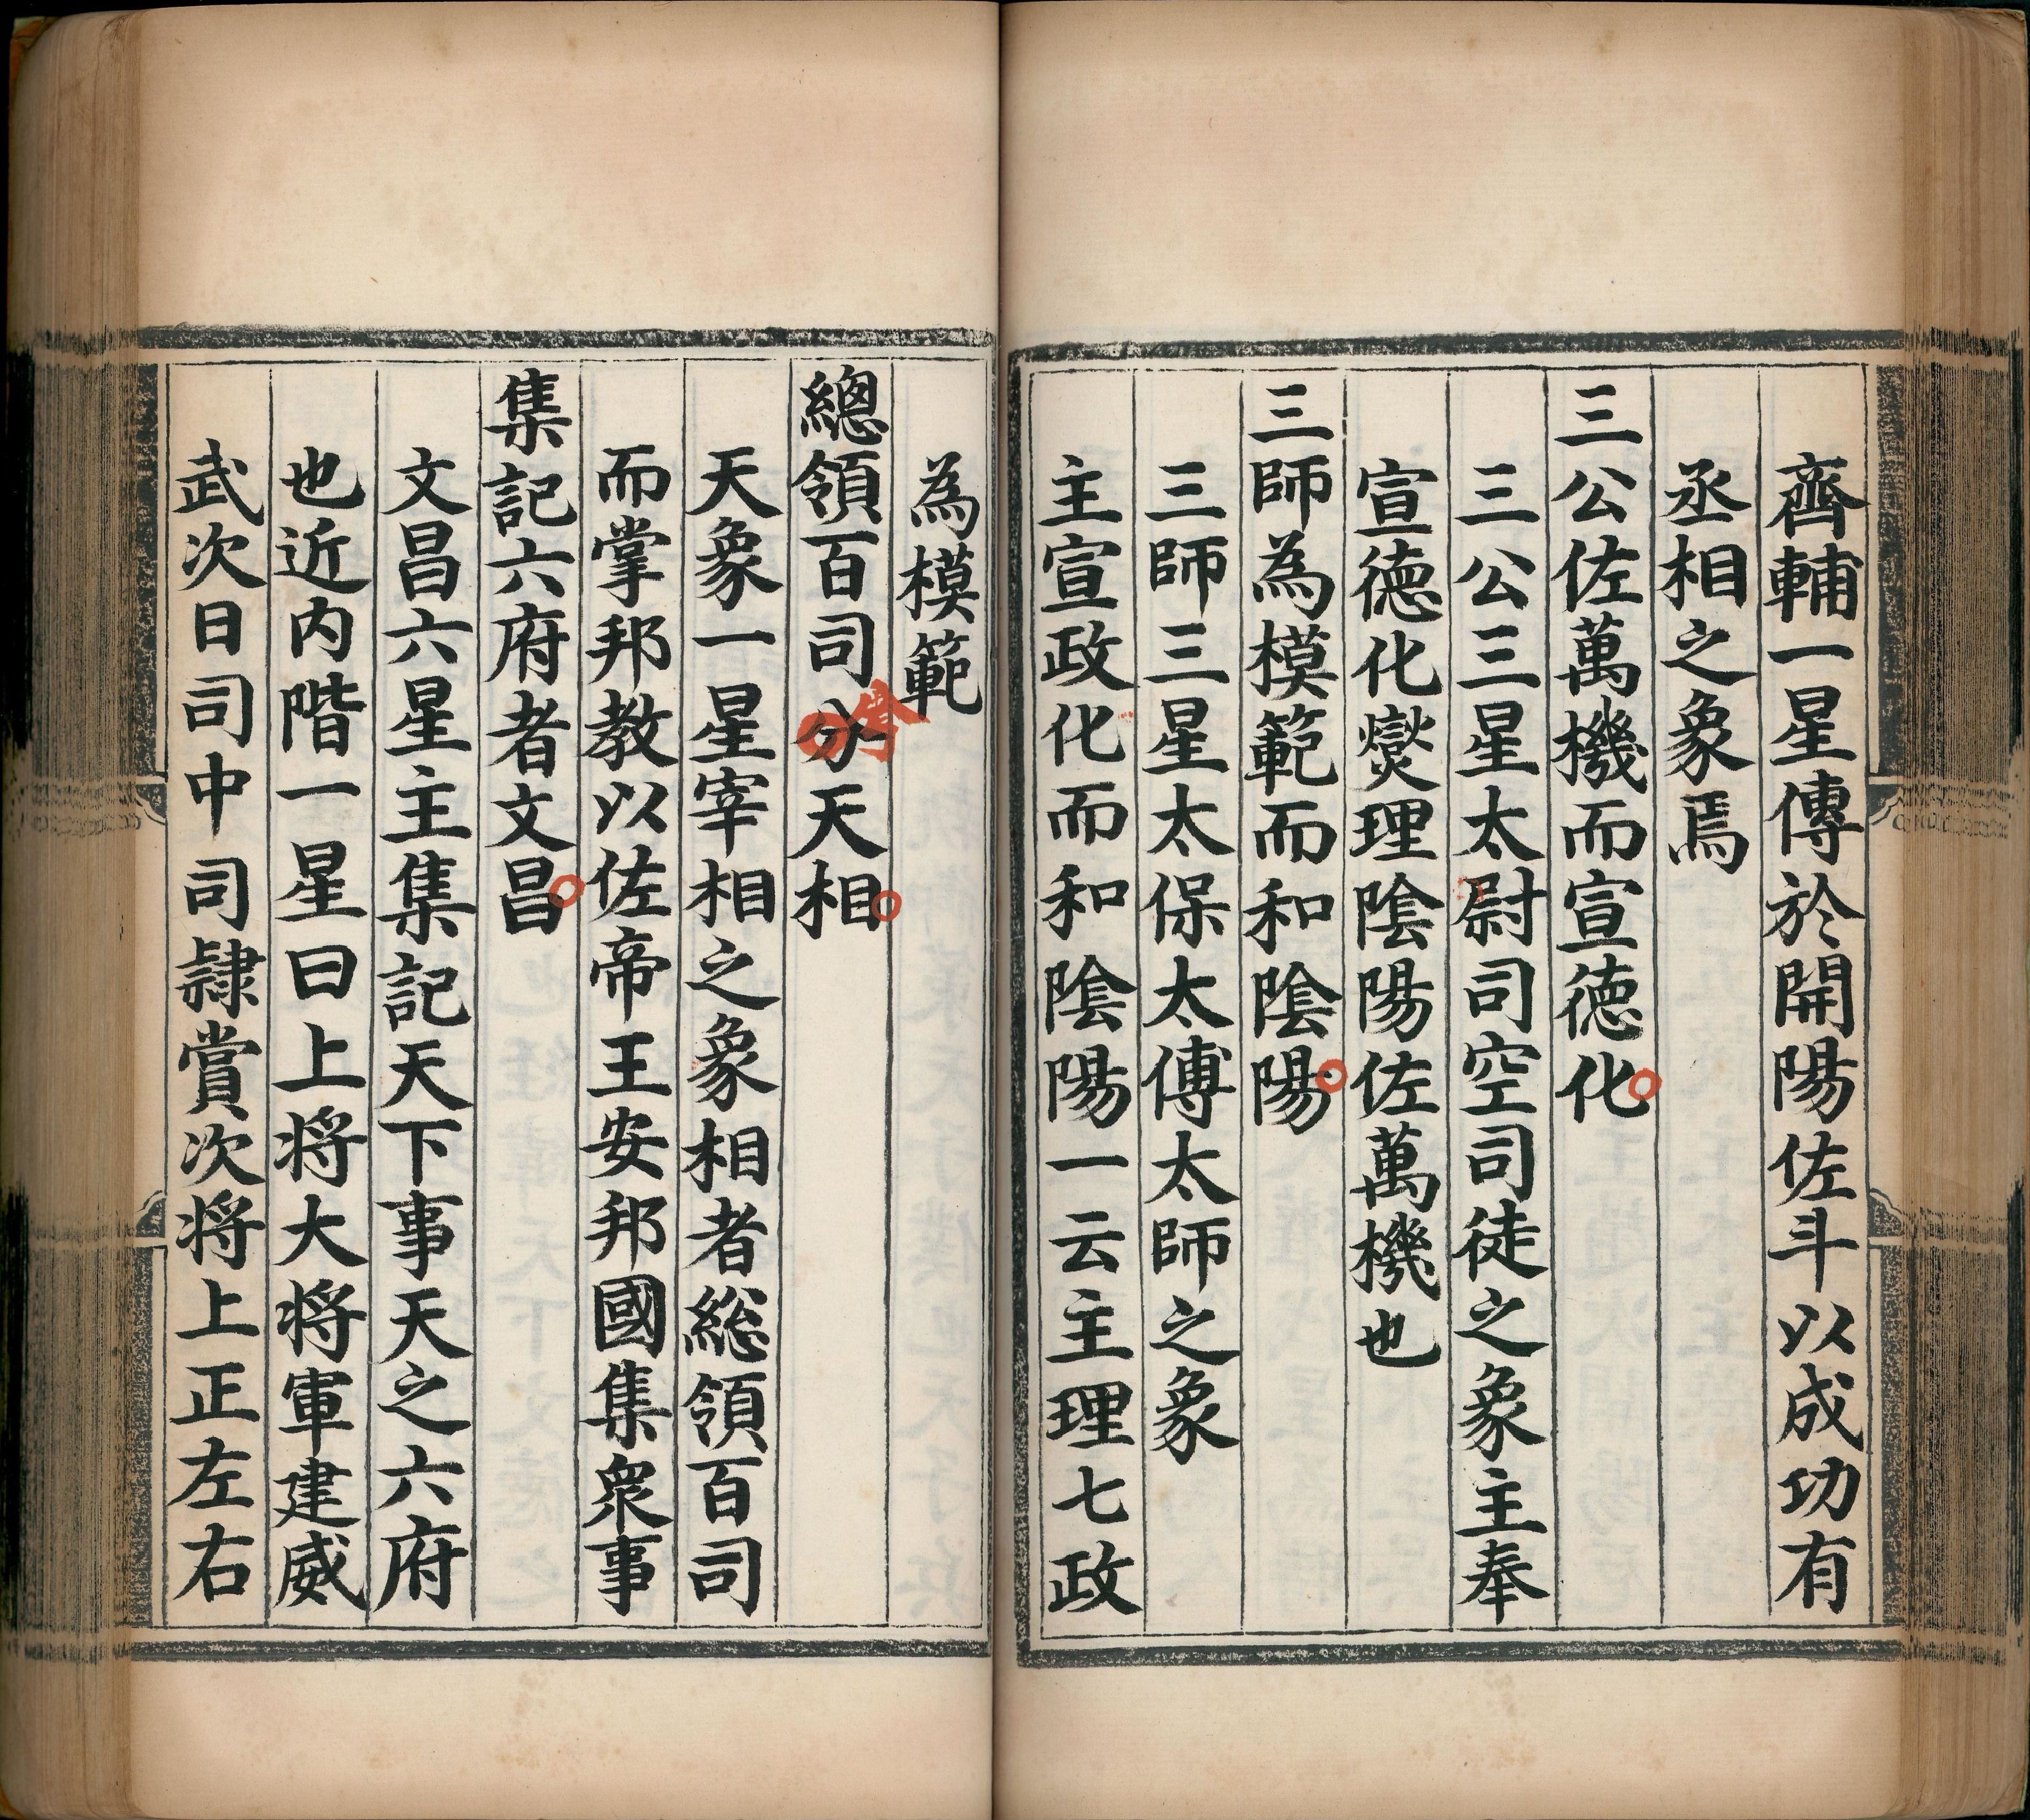 齊輔一星傳於開陽佐斗以成功有
丞相之象焉
三公佐萬機而宣德化
三公三星太尉司空司徒之象主奉
宣德化爕理陰陽佐萬機也
三師為模範而和陰陽
三師三星太保太傅太師之象
主宣政化而和陰陽一云主理七政
為模範
總領百司分兮天相
天象一星宰相之象相者総領百司
而掌邦教以佐帝王安邦國集衆事
集記六府者文昌
文昌六星主集記天下事天之六府
也近内階一星曰上将大将軍建威
武次日司中司隸賞次将上正左右